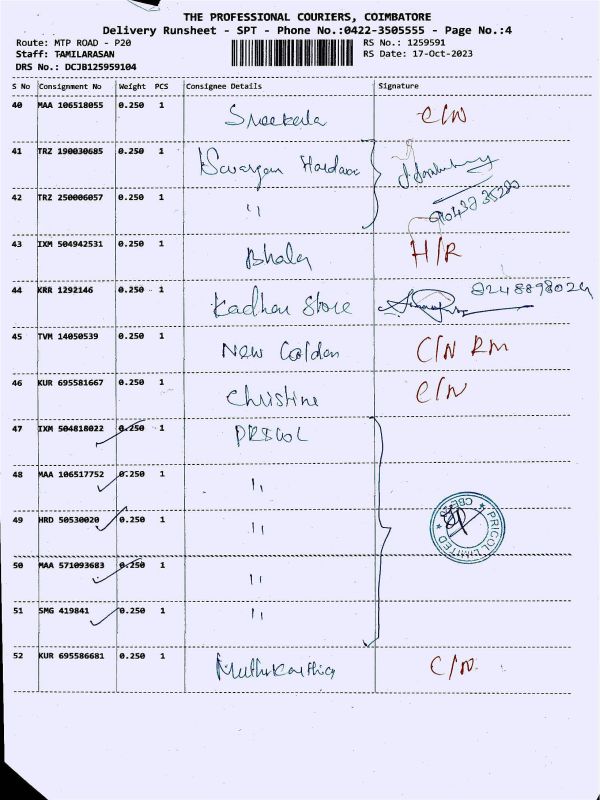 THE PROFESSIONAL COURIERS, COIMBATORE
Delivery Runsheet - SPT - Phone No.:0422-3505555 - Page No.:4
Route: MTP ROAD - P20 RS No.: 1259591
Staff: TAMILARASAN RS Date: 17-Oct-2023
DRS No.: DCJB125959104
S No Consignment No Weight PCS Consignee Details Signature
40 MAA 106518055 0.250 1 Sreekala C/N
41 TRZ 190030685 0.250 1
42 TRZ 250006057 0.250 1 "
43 IXM 504942531 0.250 1 H/R
44 KRR 1292146 0.250 1 Store 8248898024
45 TVM 14050539 0.250 1 New Golden C/N RM
46 KUR 695581667 0.250 1 Christine C/N
47 IXM 504818022 0.250 1 PRICOL
48 MAA 106517752 0.250 1 "
49 HRD 50530020 0.250 1 " PRICOL LIMITED
50 MAA 571093683 0.250 1 "
51 SMG 419841 0.250 1 "
52 KUR 695586681 0.250 1 Muthukarthig C/N